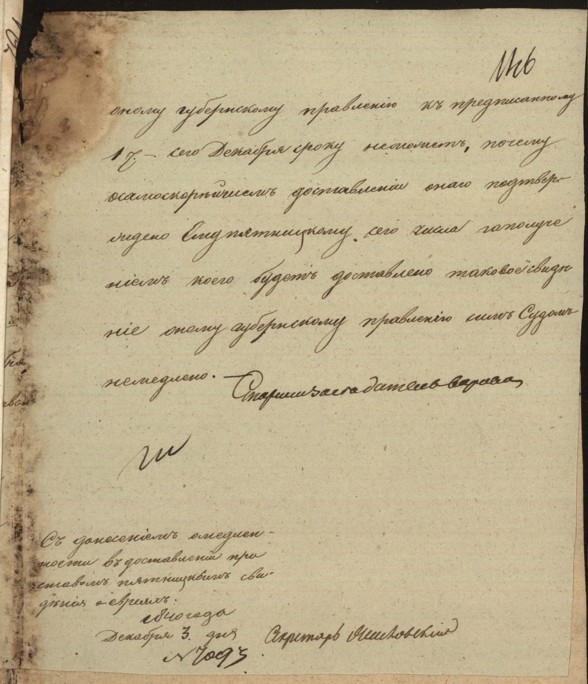 146
оному губернскому правленію къ предписанному
17.– сего Декабря сроку непошлетъ, почему
осамоскорѣйшемъ доставленіи онаго подтвер-
ждено Ему пятницкому сего числа заполуче
ніемъ коего будетъ доставлено таковое свидѣ
ніе оному губернскому правленію симъ Судомъ
немедлено. –
Старшій Заседатель
Съ донесеніемъ омедлен-
ности въ доставленіи при
ставомъ пятницкимъ свѣ-
дѣнія о евреяхъ.
года
Декабря 3 дня Секретарь
№ 7093